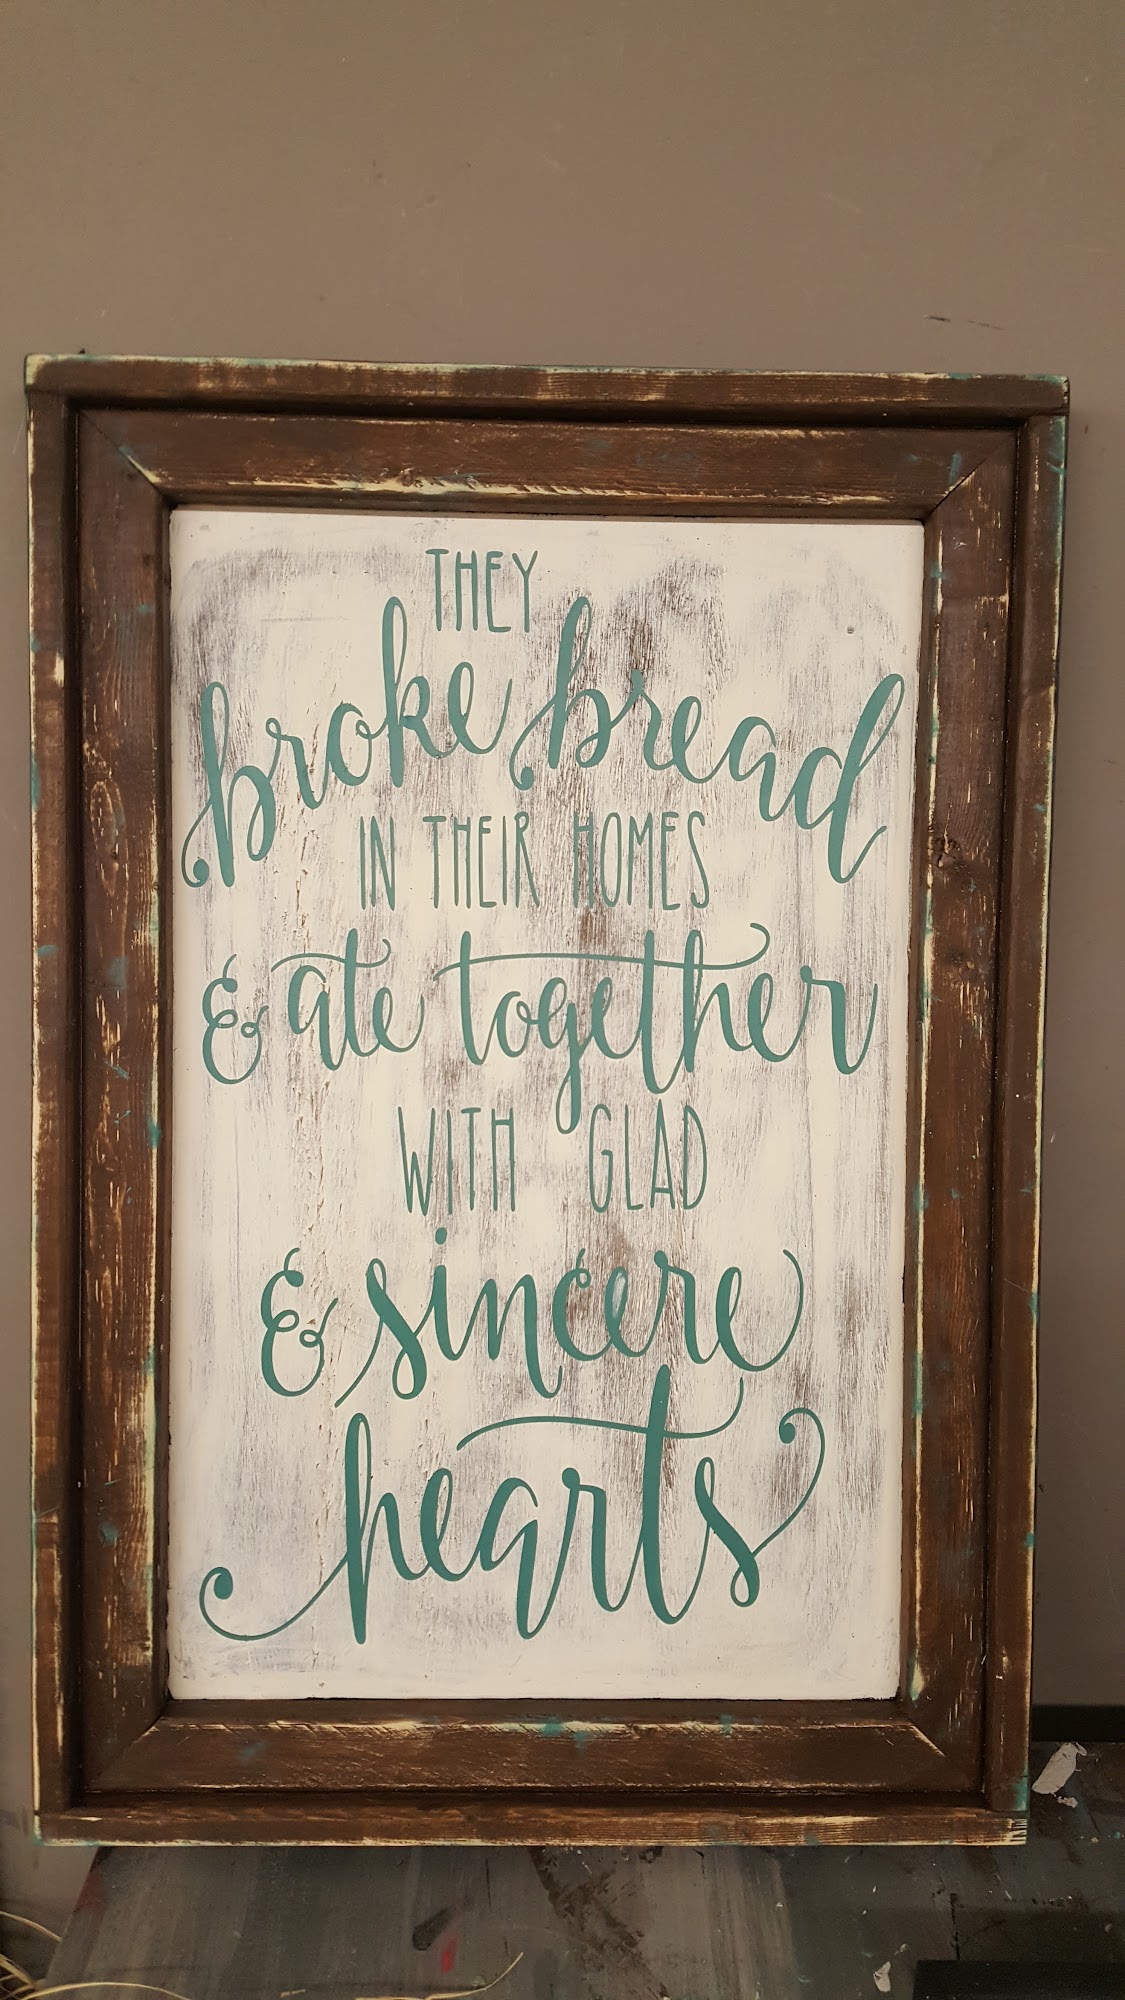 THEY
broke bread
IN THEIR HOMES
& ate together
WITH GLAD
& sincere
hearts